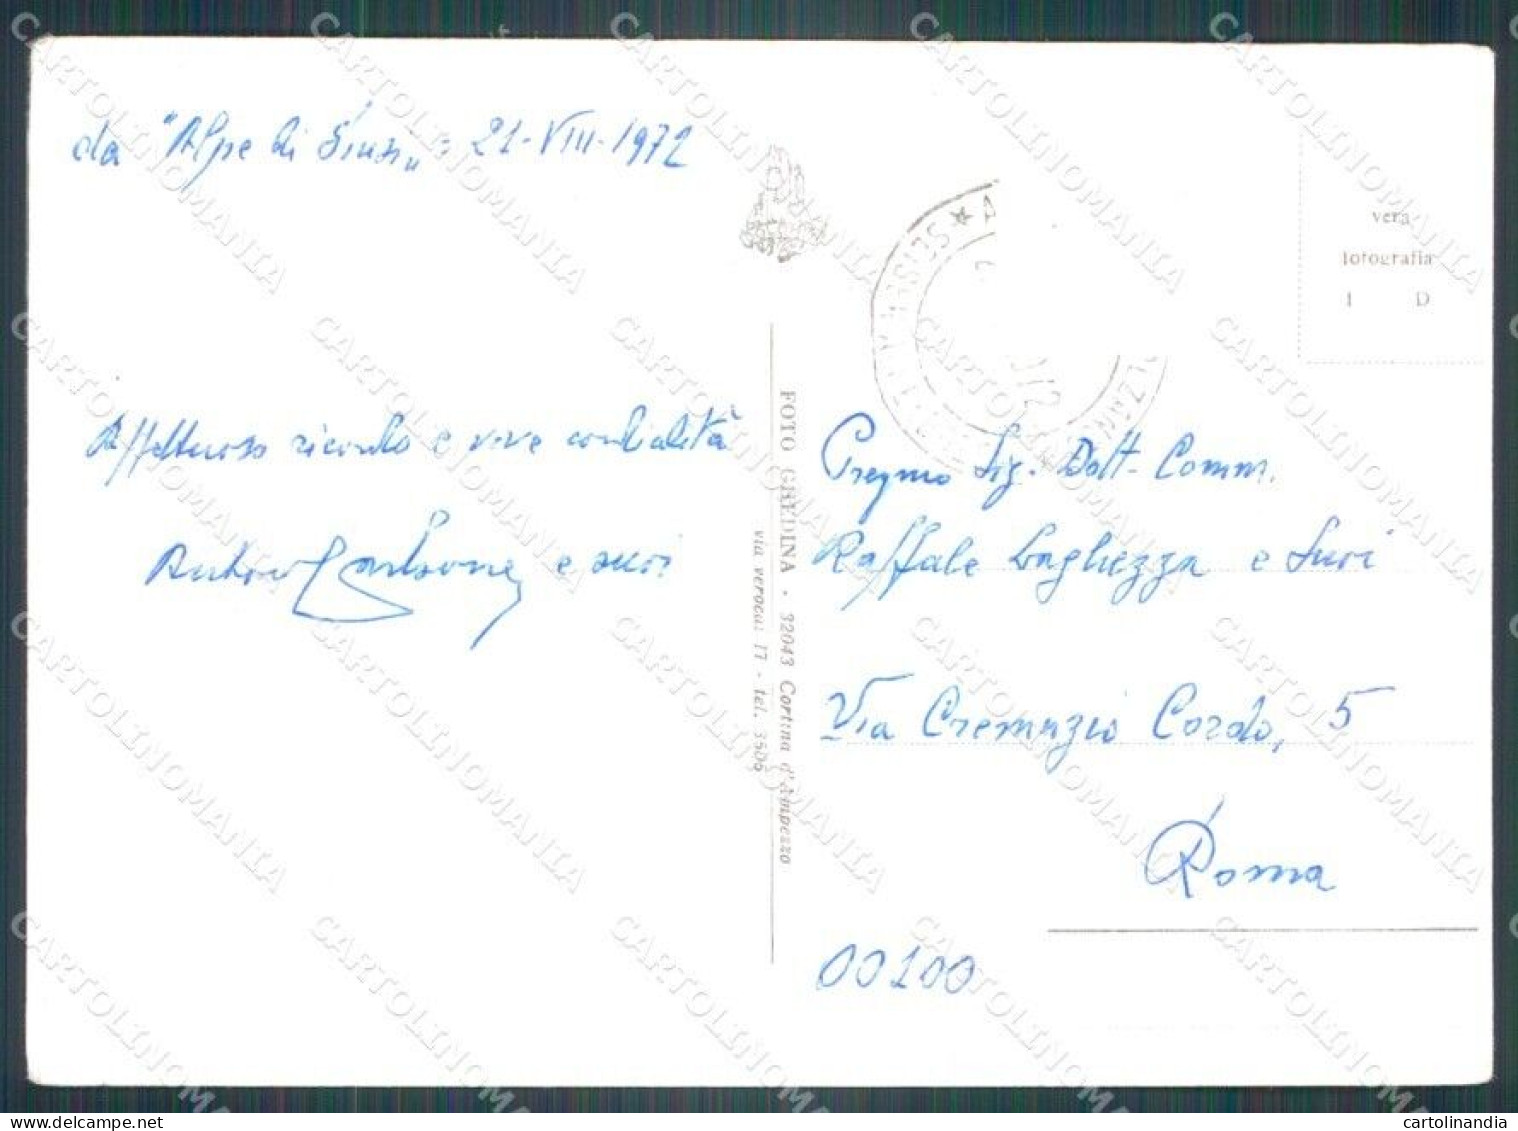 da "Alpe di Siusi„ 21-VIII-1972
Affettuoso ricordo e vive cordialità
e suoi
FOTO GHEDINA - 32043 Cortina d'Ampezzo
via verocai 17 - tel. 3506
vera
fotografia
I D
Pregmo Sig. Dott. Comm.
Raffale Laghezza e Suoi
Via Cremuzio Cordo, 5
Roma
00100
CARTOLINOMANIA
www.delcampe.net
cartolinandia